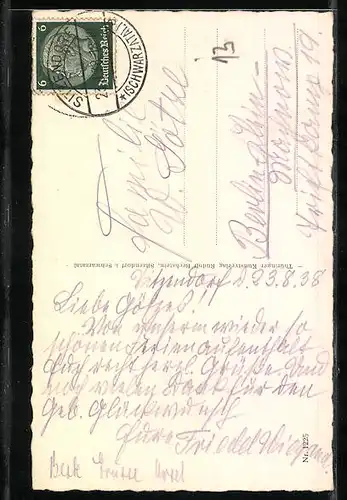 6 6
Deutsches Reich
SITZENDORF
(SCHWARZATAL)
13
Familie
W. Götze
Berlin-Lin-
Thüringer Kunstverlag Rudolf
Sitzendorf i. Schwarzatal
Sitzendorf d. 23.8.38
Liebe Götzes!
Von unserm wieder so
schönen Ferienaufenthalt
Euch recht herzl. Grüße. Und
noch vielen Dank für den
Geb. Glückwunsch
Eure Friedel
Nr. 1225
Grüsse Ursel